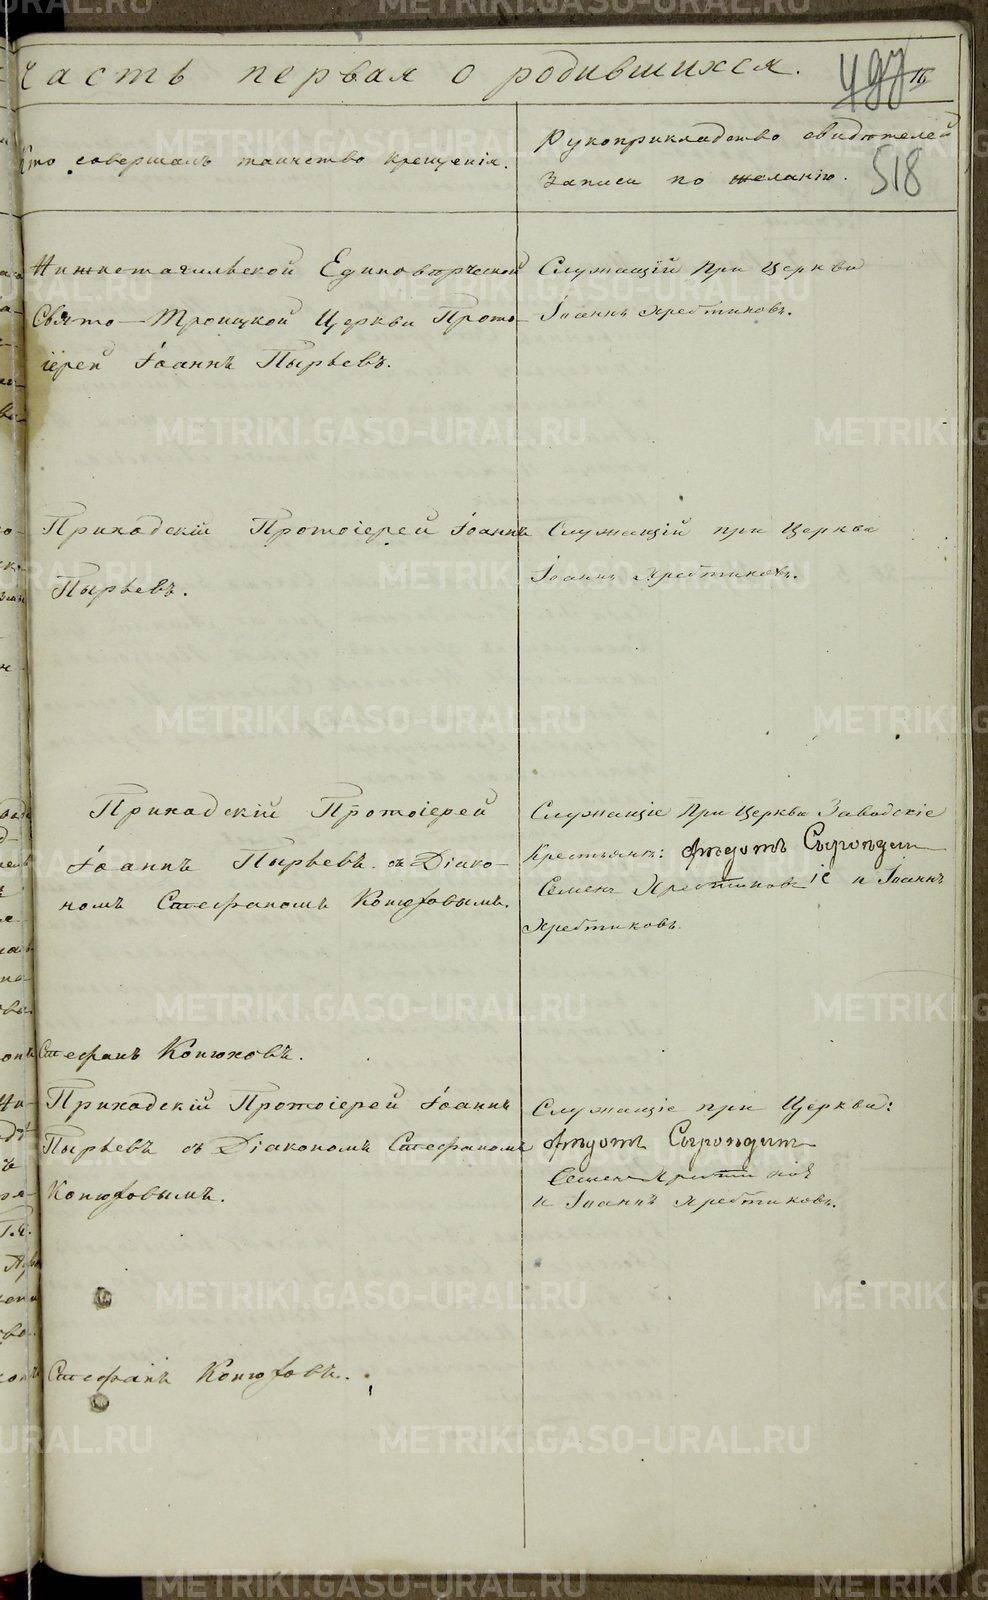 часть первая о родившихся.
16
518
Кто совершалъ таинство крещенія.
Рукоприкладство свидѣтелей
записи по желанію.
Нижнетагильской Единовѣрческой
Свято-Троицкой Церкви Прото-
іерей Іоаннъ Пырьевъ.
Служащій при Церкви
Іоаннъ Хребтиковъ.
Приходскій Протоіерей Іоаннъ
Пырьевъ.
Служащій при Церкви
Іоаннъ Хребтиковъ.
Приходскій Протоіерей
Іоаннъ Пырьевъ съ Діако-
номъ Стефаномъ Конюховымъ.
Служащіе при Церкви Заводскіе
Крестьяне: Ѳедотъ
Семенъ Хребтиков іе и Іоаннъ
Хребтиковъ.
Стефанъ Конюховъ.
Приходскій Протоіерей Іоаннъ
Пырьевъ съ Діакономъ Стефаномъ
Конюховымъ.
Служащіе при Церкви:
Ѳедотъ
Семенъ
и Іоаннъ Хребтиковъ.
Стефанъ Конюховъ.
METRIKI.GASO-URAL.RU